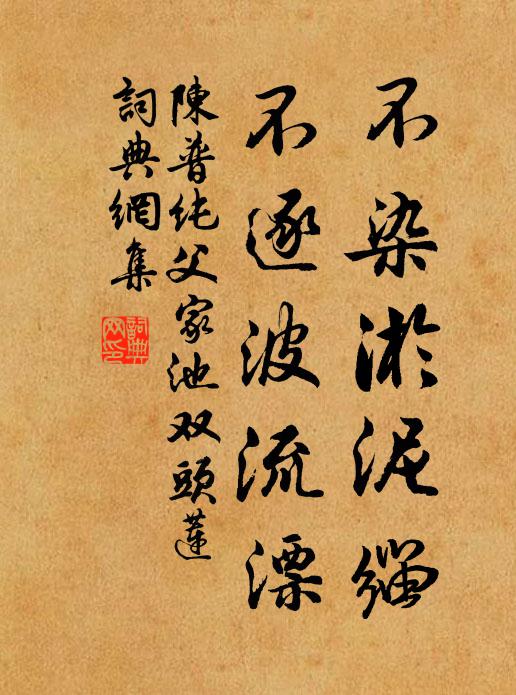 不染淤泥缁
不逐波流漂
陳普纯父家池双頭蓮
詞典網集
詞典網印